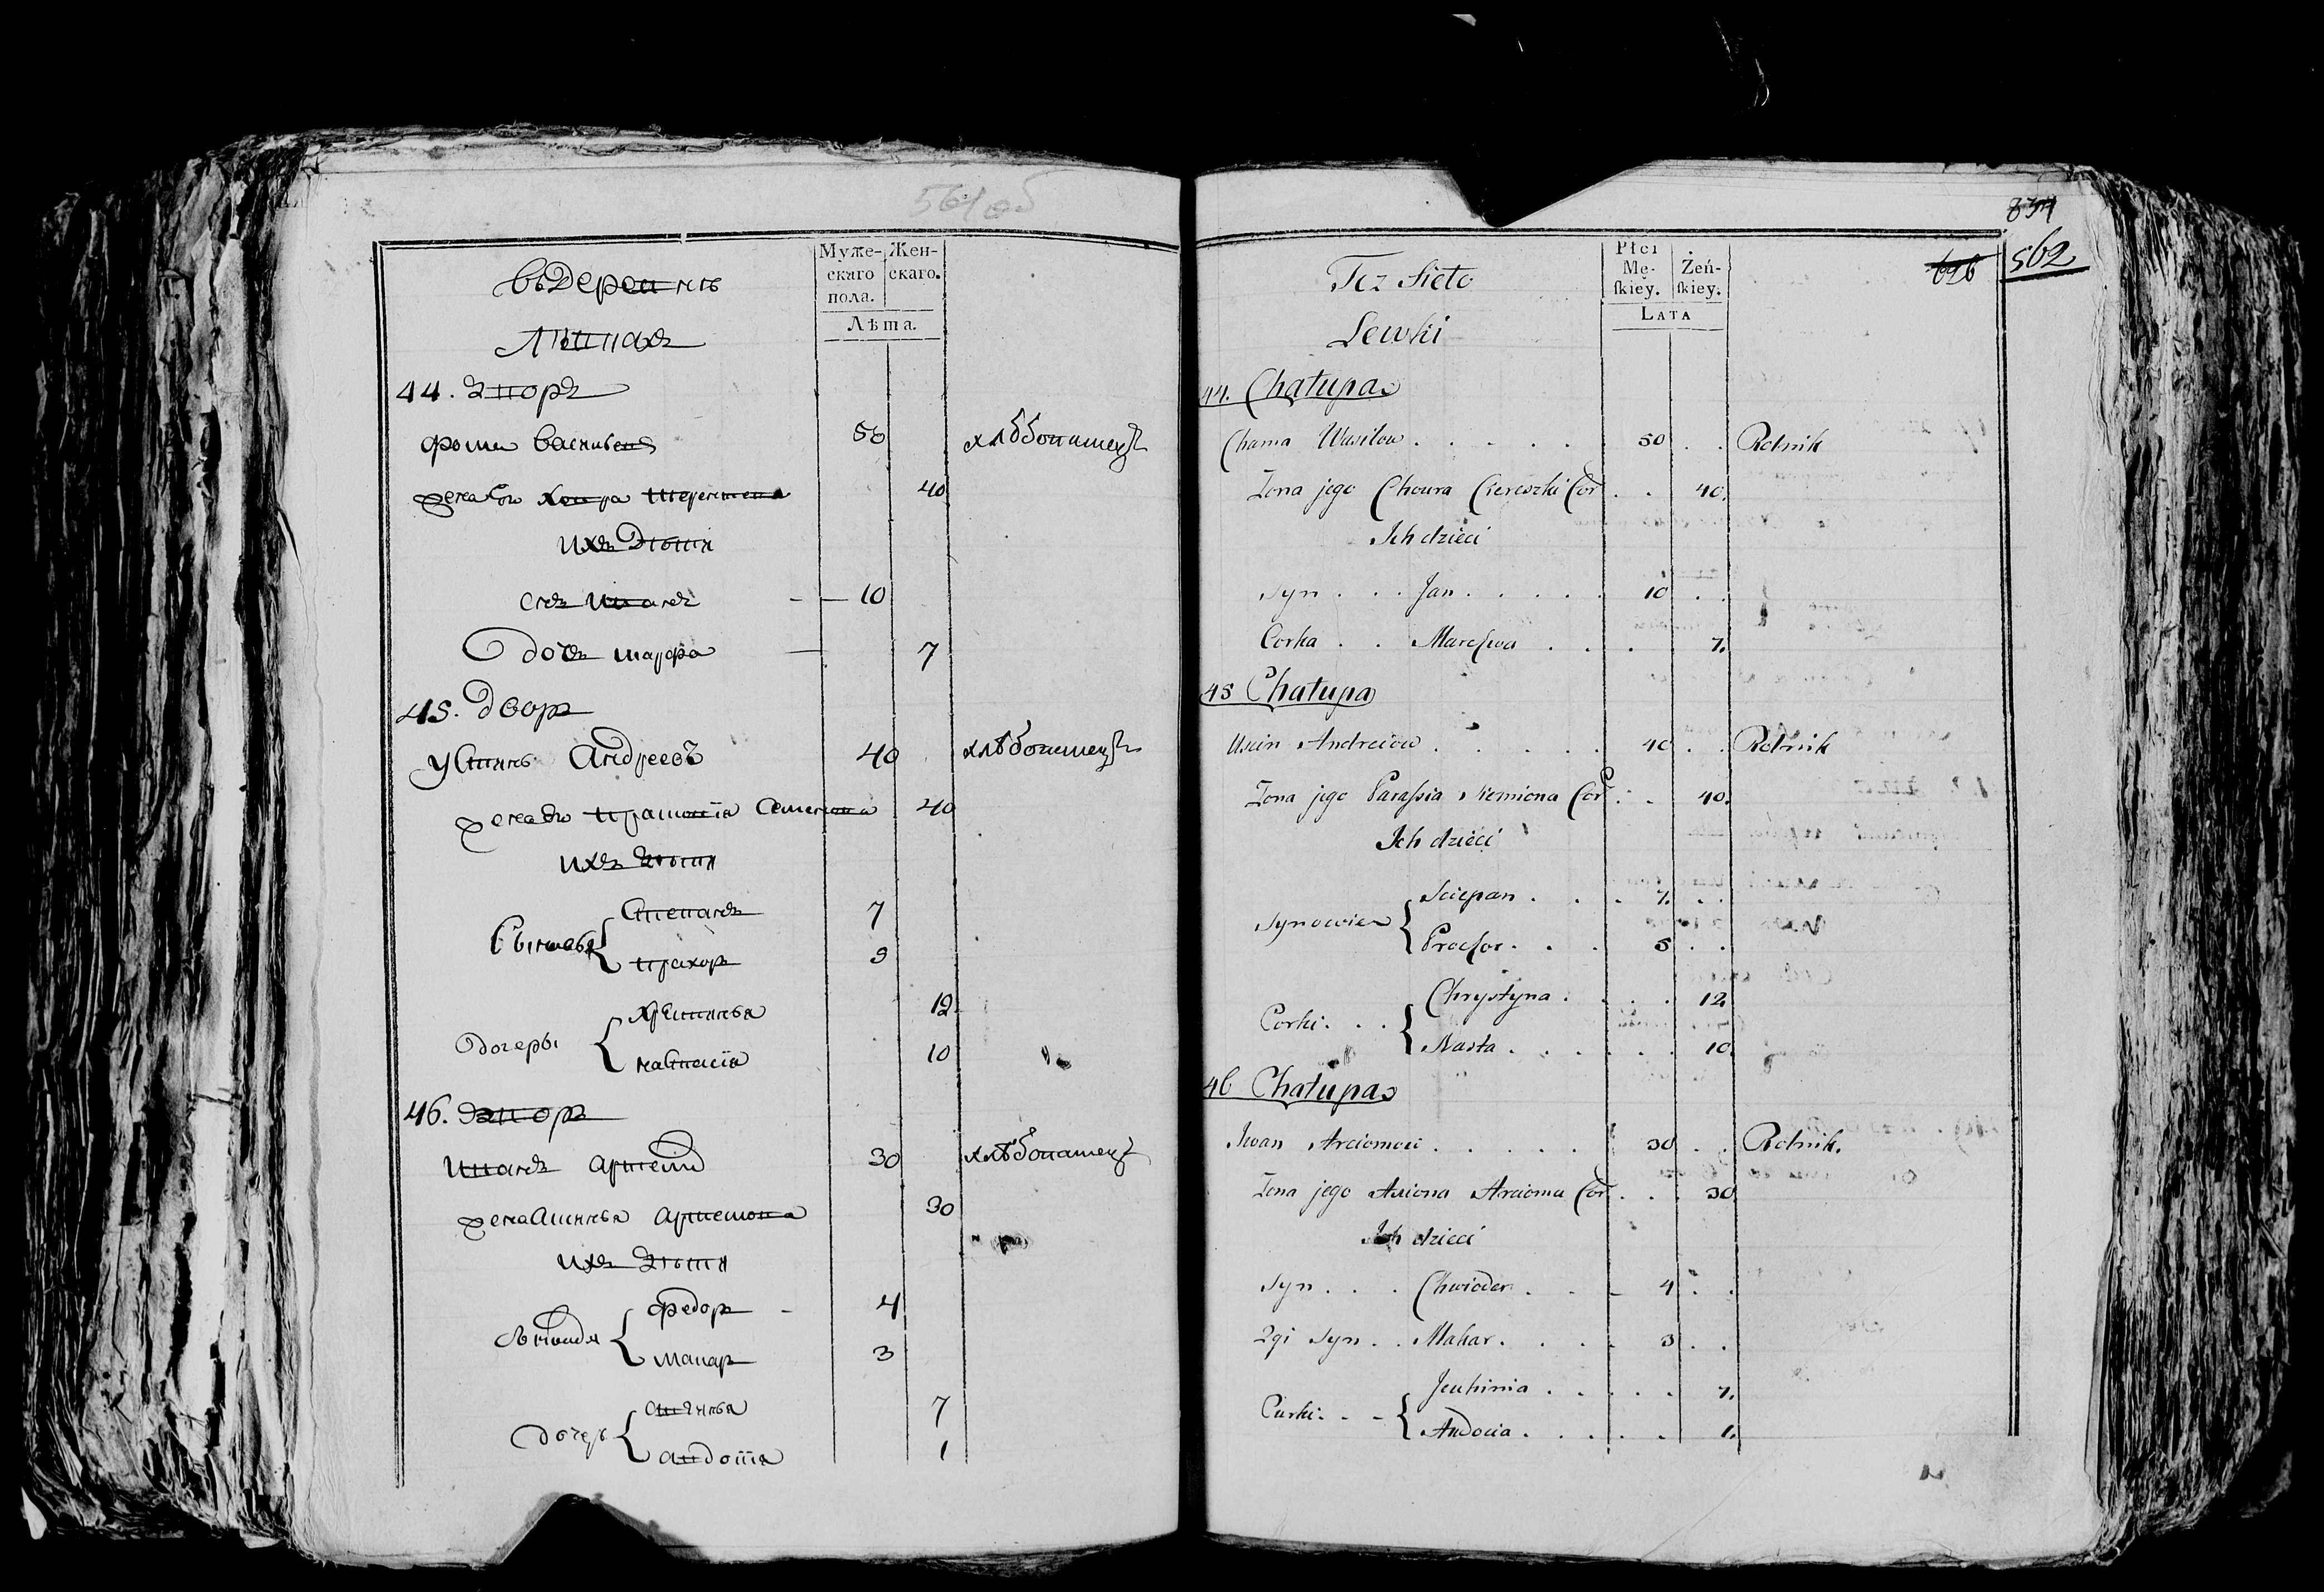 561 об
Муже-
скаго
пола.
Жен-
скаго.
Лѣта.
въ Деревнѣ
Левкахъ
44. дворъ
фома Васильевъ 50 хлѣбопашецъ
жена его Хевра терентева 40
ихъ дѣти
снъ иванъ 10
дочь марфа 7
45. дворъ
Устинъ Андреевъ 40 хлѣбопашецъ
жена его прасковія Семенова 40
ихъ дѣти
Сыновья { Степанъ 7
прахоръ 5
дочеры { Хрістинья 12
настасія 10
46. дворъ
иванъ артемів 30 хлѣбопашецъ
жена аксинья артемова 30
ихъ дѣти
Сыновья { федоръ 4
макаръ 3
дочерь { 7
авдотія 1
834
626
562
Płci
Mę-
skiey.
Żeń-
skiey.
LATA
Tez Sieło
Lewki
44. Chałupa
Chama Wasilow 50 Rolnik
Zona jego Choura Ciereszki Cor 40.
Ich dzieci
Syn Jan 10
Corka Maressva 7.
45 Chałupa
Uscin Andreiow 40 Rolnik
Zona jego Parassia Siemiona Cor 40.
Ich dzieci
Synowie { Sciepan 7.
Prochor 5
Corki { Chrystyna 12
Nasta 10
46 Chałupa
Iwan Arciomow 30 Rolnik.
Zona jego Axiona Arcioma Cor 30
Ich dzieci
Syn Chwioder 4
2gi Syn Makar 3
Curki { Jeuhinia 7.
Audocia 1.